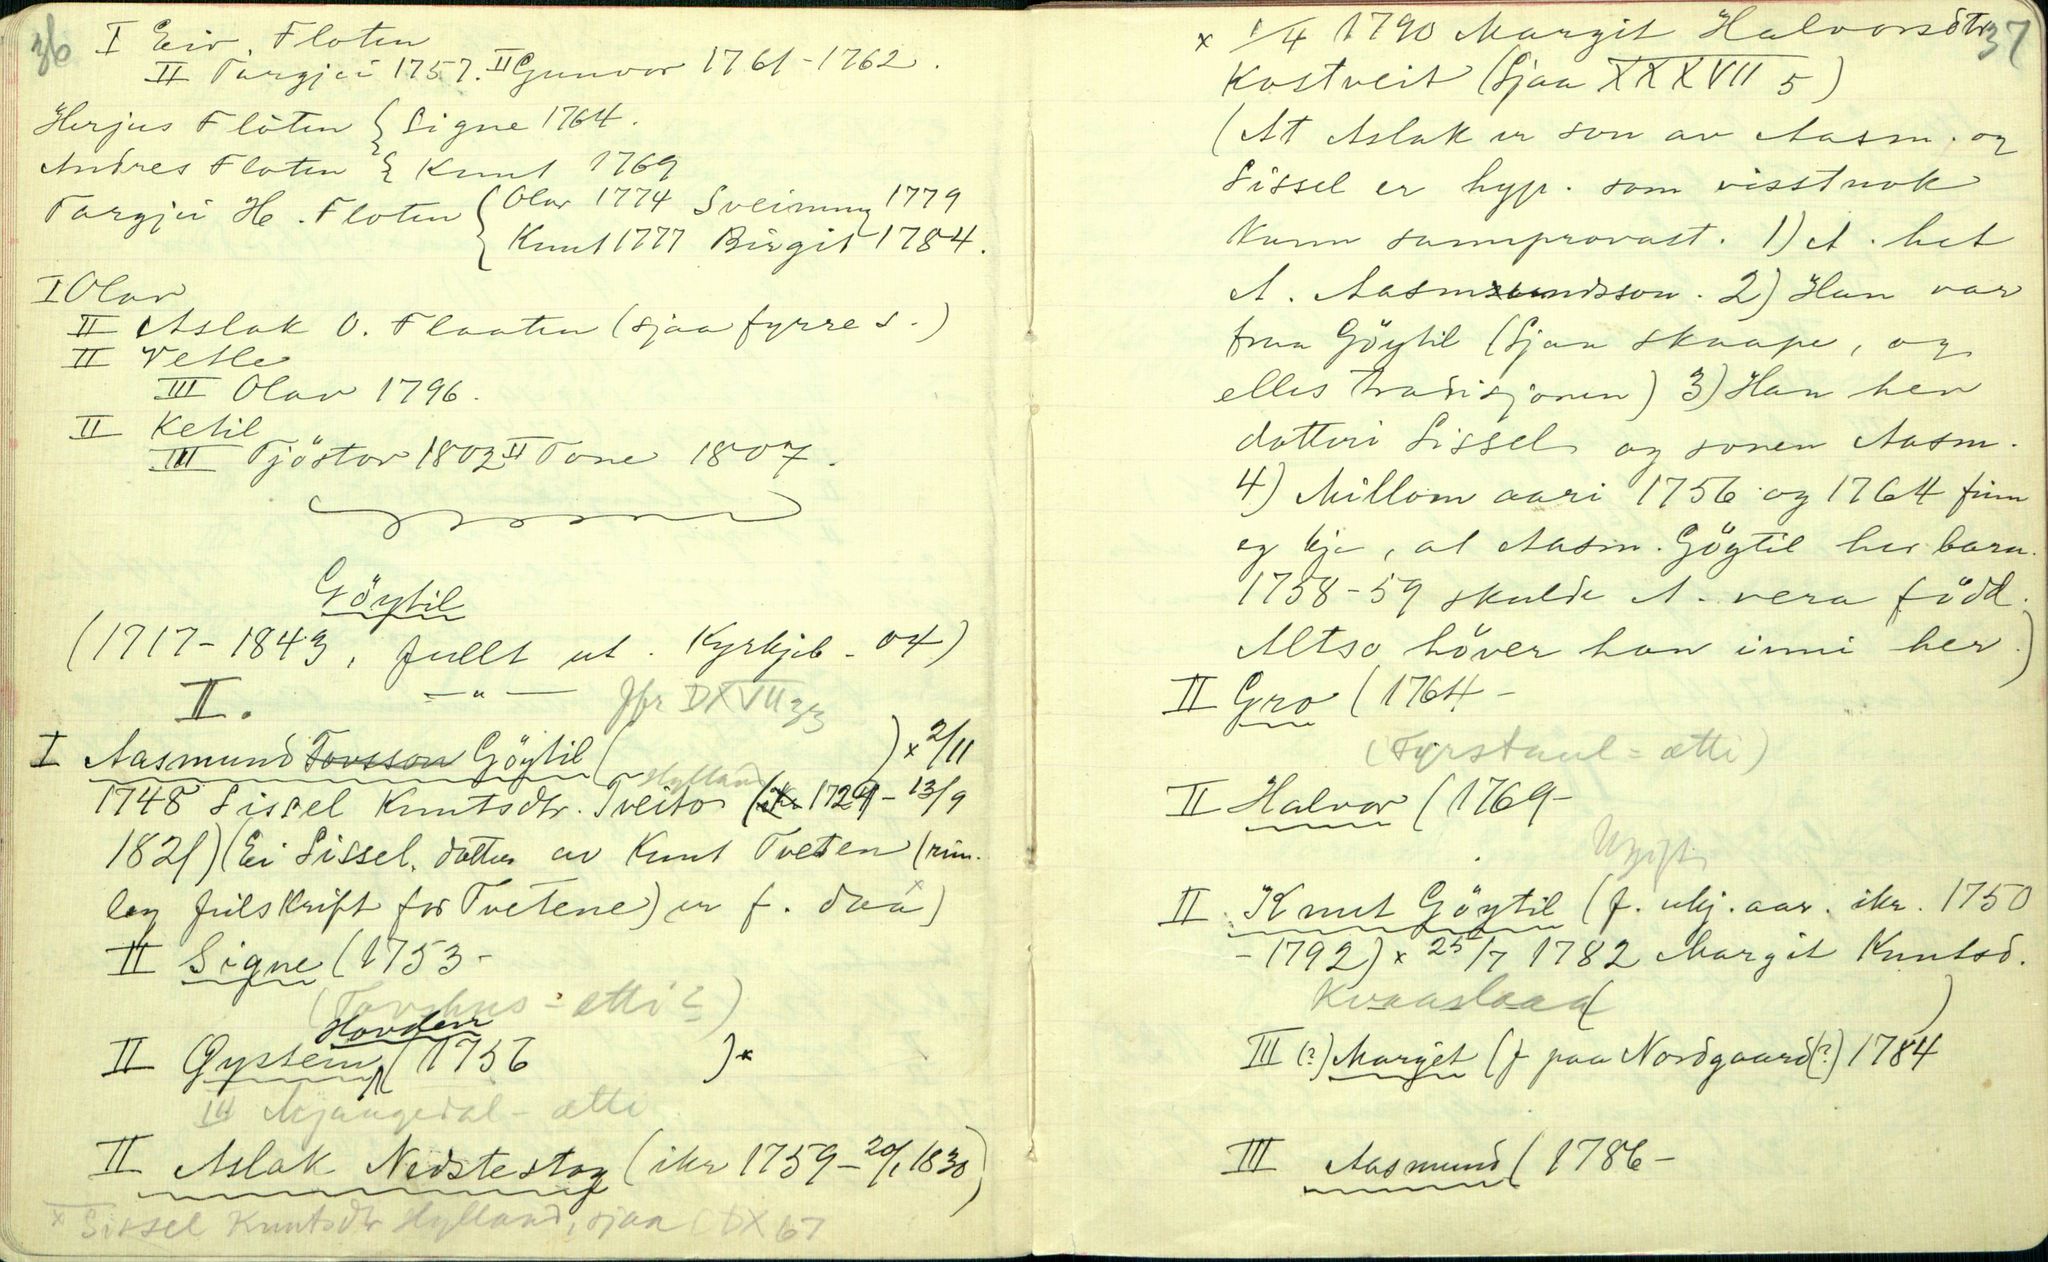 36
I Eiv. Floten
II Targjei 1757. II Gunvor 1761-1762.
Herjus Flöten { Signe 1764.
Andres Floten { Knut 1769
Targjei H. Floten { Olav 1774 Sveinung 1779
Knut 1777 Birgit 1784.
I Olav
II Aslak O. Flaaten (sjaa fyrre s.)
II Vetle
III Olav 1796.
II Ketil
III Tjöstov 1802 II Tone 1807.
Göytil
(1717-1843, fullt ut. Kyrkjeb. 04)
II. — " — Jfr DXVII 33
I Aasmund Tovsson Göytil ( ) x 2/11
Hylland
1748 Sissel Knutsdtr. Tveito (ikr 1729 - 13/9
1821) (Ei Sissel, dotter av Knut Tveten (rim-
leg feilskrift for Tvetene) er f. daa x)
II Signe (1753-
(Tovehus-ætti?)
Hovden
II Öystein (1756 ) x
III Mjaugedal-ætti
II Aslak Nedstestog (ikr 1759 - 20/1 1830)
x Sissel Knutsdtr Hylland, sjaa DX 67
37
x 1/4 1790 Margit Halvorsdtr
Kostveit (Sjaa XXXVII 5)
(At Aslak er son av Aasm. og
Sissel er hyp. som visstnok
kann sannprovast. 1) A. het
A. Aasmundsson. 2) Han var
fraa Göytil (Sjaa skaape, og
elles tradisjonen) 3) Han hev
dotteri Sissel og sonen Aasm.
4) Millom aari 1756 og 1764 finn
eg kje, at Aasm. Göytil hev barn.
1758-59 skulde A. vera född.
Altso höver han inni her.)
II Gro (1764-
(Fyrstaul=ætti)
II Halvor (1769-
Ugift
II Knut Göytil (f. ukj. aar. ikr. 1750
-1792) x 25/7 1782 Margit Knutsd.
Kvaaslaad ( )
III (?) Margit (f paa Nordgaard (?) 1784
III Aasmund (1786-